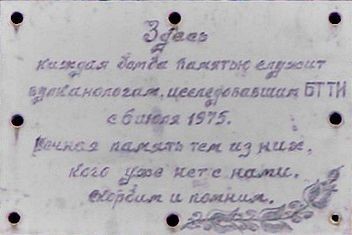 Здесь
каждая бомба памятью служит
вулканологам, исследовавшим БТТИ
с 6 июля 1975.
Вечная память тем из них,
кого уже нет с нами.
Скорбим и помним.